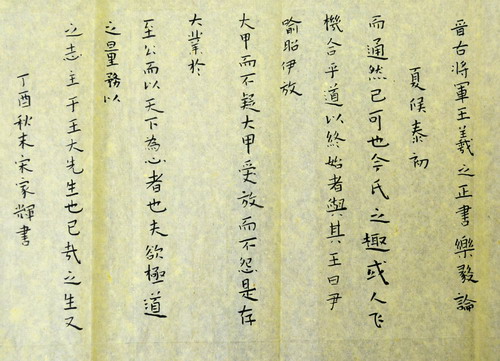 晋右将軍王羲之正書樂毅論
夏侯泰初
而通然已可也今氏之趣或人下
機合乎道以終始者與其王曰尹
喻昭伊放
大甲而不疑大甲受放而不怨是存
大業於
至公而以天下為心者也夫欲極道
之量務以
之志主于王大先生也已哉之生又
丁酉秋末宋家輝書